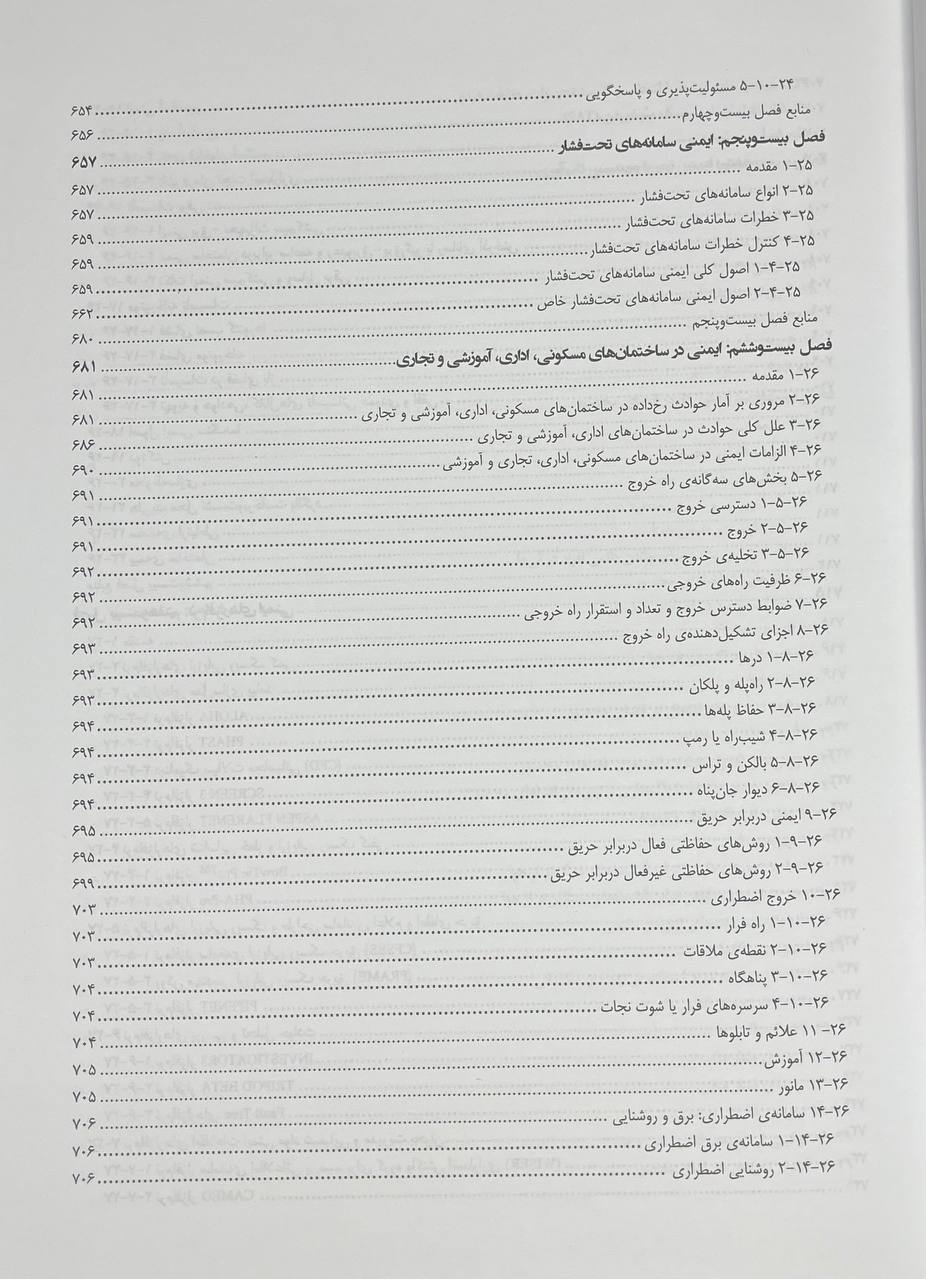 ۲۴-۱۰-۵ مسئولیت‌پذیری و پاسخگویی ........ ۶۵۴
منابع فصل بیست‌وچهارم ........ ۶۵۶
فصل بیست‌وپنجم: ایمنی سامانه‌های تحت‌فشار ........ ۶۵۷
۲۵-۱ مقدمه ........ ۶۵۷
۲۵-۲ انواع سامانه‌های تحت‌فشار ........ ۶۵۷
۲۵-۳ خطرات سامانه‌های تحت‌فشار ........ ۶۵۹
۲۵-۴ کنترل خطرات سامانه‌های تحت‌فشار ........ ۶۵۹
۲۵-۴-۱ اصول کلی ایمنی سامانه‌های تحت‌فشار ........ ۶۵۹
۲۵-۴-۲ اصول ایمنی سامانه‌های تحت‌فشار خاص ........ ۶۶۲
منابع فصل بیست‌وپنجم ........ ۶۸۰
فصل بیست‌وششم: ایمنی در ساختمان‌های مسکونی، اداری، آموزشی و تجاری ........ ۶۸۱
۲۶-۱ مقدمه ........ ۶۸۱
۲۶-۲ مروری بر آمار حوادث رخ‌داده در ساختمان‌های مسکونی، اداری، آموزشی و تجاری ........ ۶۸۱
۲۶-۳ علل کلی حوادث در ساختمان‌های اداری، آموزشی و تجاری ........ ۶۸۶
۲۶-۴ الزامات ایمنی در ساختمان‌های مسکونی، اداری، تجاری و آموزشی ........ ۶۹۰
۲۶-۵ بخش‌های سه‌گانه‌ی راه خروج ........ ۶۹۱
۲۶-۵-۱ دسترسی خروج ........ ۶۹۱
۲۶-۵-۲ خروج ........ ۶۹۱
۲۶-۵-۳ تخلیه‌ی خروج ........ ۶۹۲
۲۶-۶ ظرفیت راه‌های خروجی ........ ۶۹۲
۲۶-۷ ضوابط دسترس خروج و تعداد و استقرار راه خروجی ........ ۶۹۲
۲۶-۸ اجزای تشکیل‌دهنده‌ی راه خروج ........ ۶۹۳
۲۶-۸-۱ درها ........ ۶۹۳
۲۶-۸-۲ راه‌پله و پلکان ........ ۶۹۳
۲۶-۸-۳ حفاظ پله‌ها ........ ۶۹۴
۲۶-۸-۴ شیب‌راه یا رمپ ........ ۶۹۴
۲۶-۸-۵ بالکن و تراس ........ ۶۹۴
۲۶-۸-۶ دیوار جان‌پناه ........ ۶۹۴
۲۶-۹ ایمنی دربرابر حریق ........ ۶۹۵
۲۶-۹-۱ روش‌های حفاظتی فعال دربرابر حریق ........ ۶۹۵
۲۶-۹-۲ روش‌های حفاظتی غیرفعال دربرابر حریق ........ ۶۹۹
۲۶-۱۰ خروج اضطراری ........ ۷۰۳
۲۶-۱۰-۱ راه فرار ........ ۷۰۳
۲۶-۱۰-۲ نقطه‌ی ملاقات ........ ۷۰۳
۲۶-۱۰-۳ پناهگاه ........ ۷۰۴
۲۶-۱۰-۴ سرسره‌های فرار یا شوت نجات ........ ۷۰۴
۲۶- ۱۱ علائم و تابلوها ........ ۷۰۴
۲۶-۱۲ آموزش ........ ۷۰۵
۲۶-۱۳ مانور ........ ۷۰۵
۲۶-۱۴ سامانه‌ی اضطراری: برق و روشنایی ........ ۷۰۶
۲۶-۱۴-۱ سامانه‌ی برق اضطراری ........ ۷۰۶
۲۶-۱۴-۲ روشنایی اضطراری ........ ۷۰۶